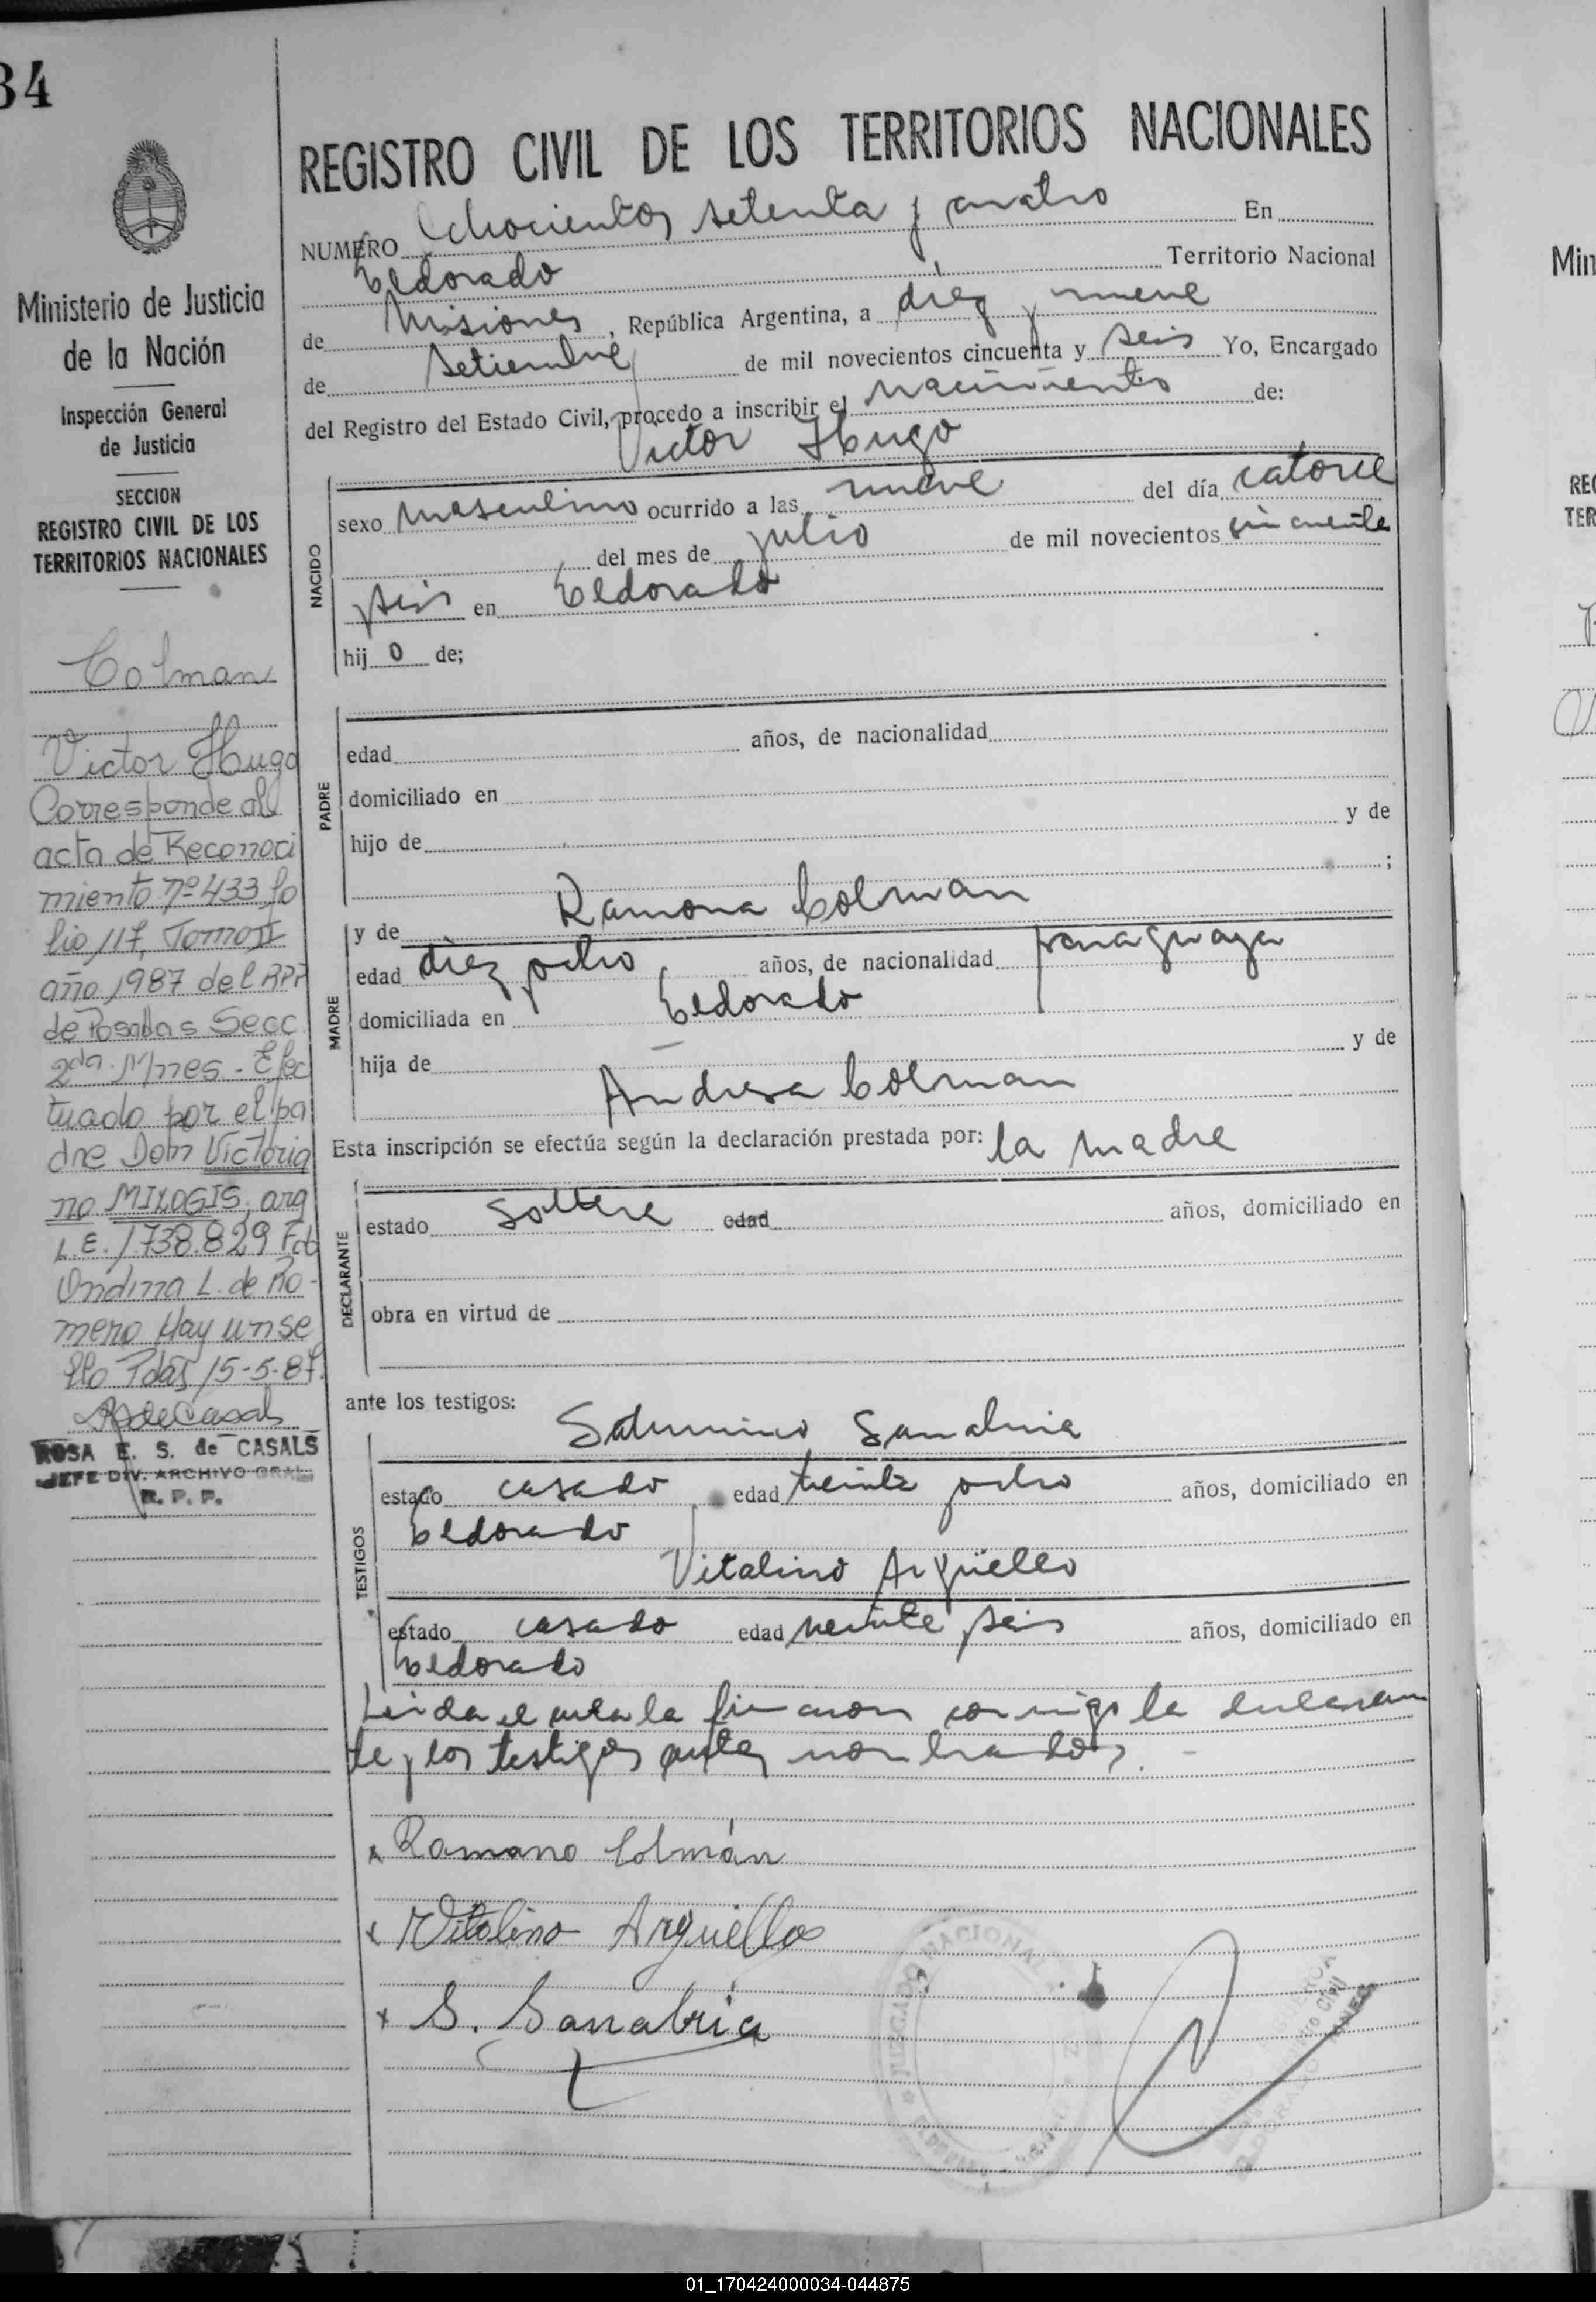 34
Ministerio de Justicia
de la Nación
Inspección General
de Justicia
SECCION
REGISTRO CIVIL DE LOS
TERRITORIOS NACIONALES
Colman
Victor Hugo
Corresponde al
acta de Reconoci
miento nº 433 fo
lio 117, Tomo II
año 1987 del RPP
de Posadas Secc
2da. M/nes - Efec
tuado por el pa
dre Don Victoria
no MILOGIS, arg
L.E. 1.738.829 Fdo
Ondina L. de Ro-
mero Hay un se
llo Pdas 15-5-87.
R de Casals
ROSA E. S. de CASALS
JEFE DIV. ARCHIVO GRAL.
R. P. P.
REGISTRO CIVIL DE LOS TERRITORIOS NACIONALES
NUMERO Ochocientos setenta y cuatro En
Eldorado Territorio Nacional
de Misiones, República Argentina, a diez y nueve
de setiembre de mil novecientos cincuenta y seis Yo, Encargado
del Registro del Estado Civil, procedo a inscribir el nacimiento de:
Victor Hugo
NACIDO
sexo masculino ocurrido a las nueve del día catorce
del mes de julio de mil novecientos cincuenta
seis en Eldorado
hij o de;
PADRE
edad años, de nacionalidad
domiciliado en
hijo de y de
;
MADRE
y de Ramona Colman
edad diez y ocho años, de nacionalidad paraguaya
domiciliada en Eldorado
hija de — y de
Andresa Colman
Esta inscripción se efectúa según la declaración prestada por: la madre
DECLARANTE
estado soltera edad años, domiciliado en
obra en virtud de
ante los testigos:
TESTIGOS
Saturnino Sanabria
estado casado edad treinta y ocho años, domiciliado en
Eldorado
Vitalino Argüello
estado casado edad veinte y seis años, domiciliado en
Eldorado
Leida el acta la firmaron conmigo la declaran
te y los testigos antes nombrados. -
x Ramona Colmán
x Vitalino Arguello
x S. Sanabria
JUZGADO NACIONAL
Min
REG
TER
01_170424000034-044875